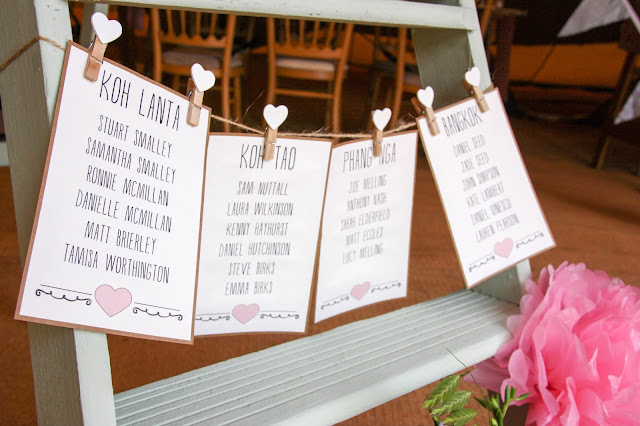 KOH LANTA
STUART SMALLEY
SAMANTHA SMALLEY
RONNIE MCMILLAN
DANIELLE MCMILLAN
MATT BRIERLEY
TAMISA WORTHINGTON
KOH TAO
SAM NUTTALL
LAURA WILKINSON
KENNY HAYHURST
DANIEL HUTCHINSON
STEVE BIRKS
EMMA BIRKS
PHANG NGA
JOE MELLING
ANTHONY NASH
SARAH ELDERFIELD
MATT ECCLES
LUCY MELLING
BANGKOK
DANIEL DEED
JADE DEED
JOHN SIMPSON
KATE LAMBERT
DANIEL IONESCU
LAUREN PEARSON